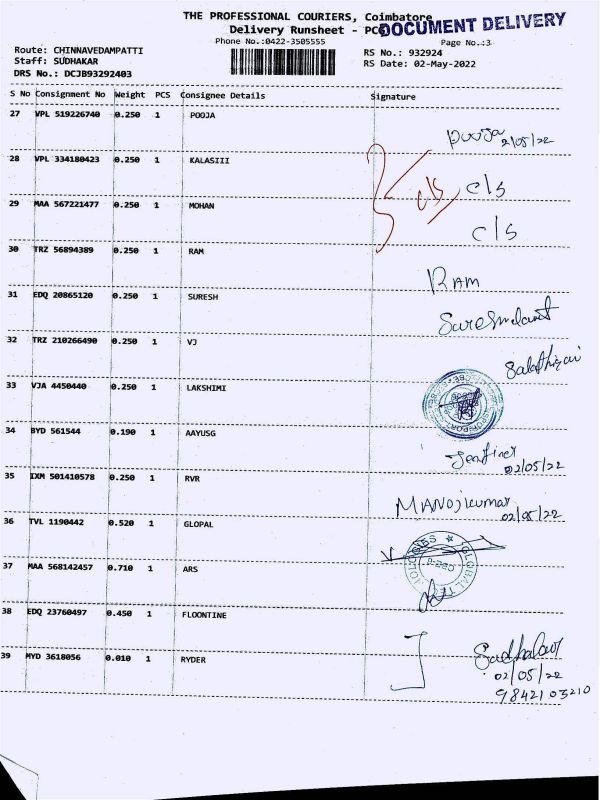 THE PROFESSIONAL COURIERS, Coimbatore
Delivery Runsheet - PCC
DOCUMENT DELIVERY
Phone No.:0422-3505555
Page No.:3
Route: CHINNAVEDAMPATTI
RS No.: 932924
Staff: SUDHAKAR
RS Date: 02-May-2022
DRS No.: DCJB93292403
S No Consignment No Weight PCS Consignee Details Signature
27 VPL 519226740 0.250 1 POOJA
Pooja 2/05/22
28 VPL 334180423 0.250 1 KALASIII
c/s c/s
29 MAA 567221477 0.250 1 MOHAN
c/s
30 TRZ 56894389 0.250 1 RAM
RAM
31 EDQ 20865120 0.250 1 SURESH
32 TRZ 210266490 0.250 1 VJ
33 VJA 4450440 0.250 1 LAKSHIMI
34 BYD 561544 0.190 1 AAYUSG
02/05/22
35 IXM 501410578 0.250 1 RVR
MANOjkumar
02/05/22
36 TVL 1190442 0.520 1 GLOPAL
37 MAA 568142457 0.710 1 ARS
38 EDQ 23760497 0.450 1 FLOONTINE
39 MYD 3618056 0.010 1 RYDER
02/05/22
9842103210